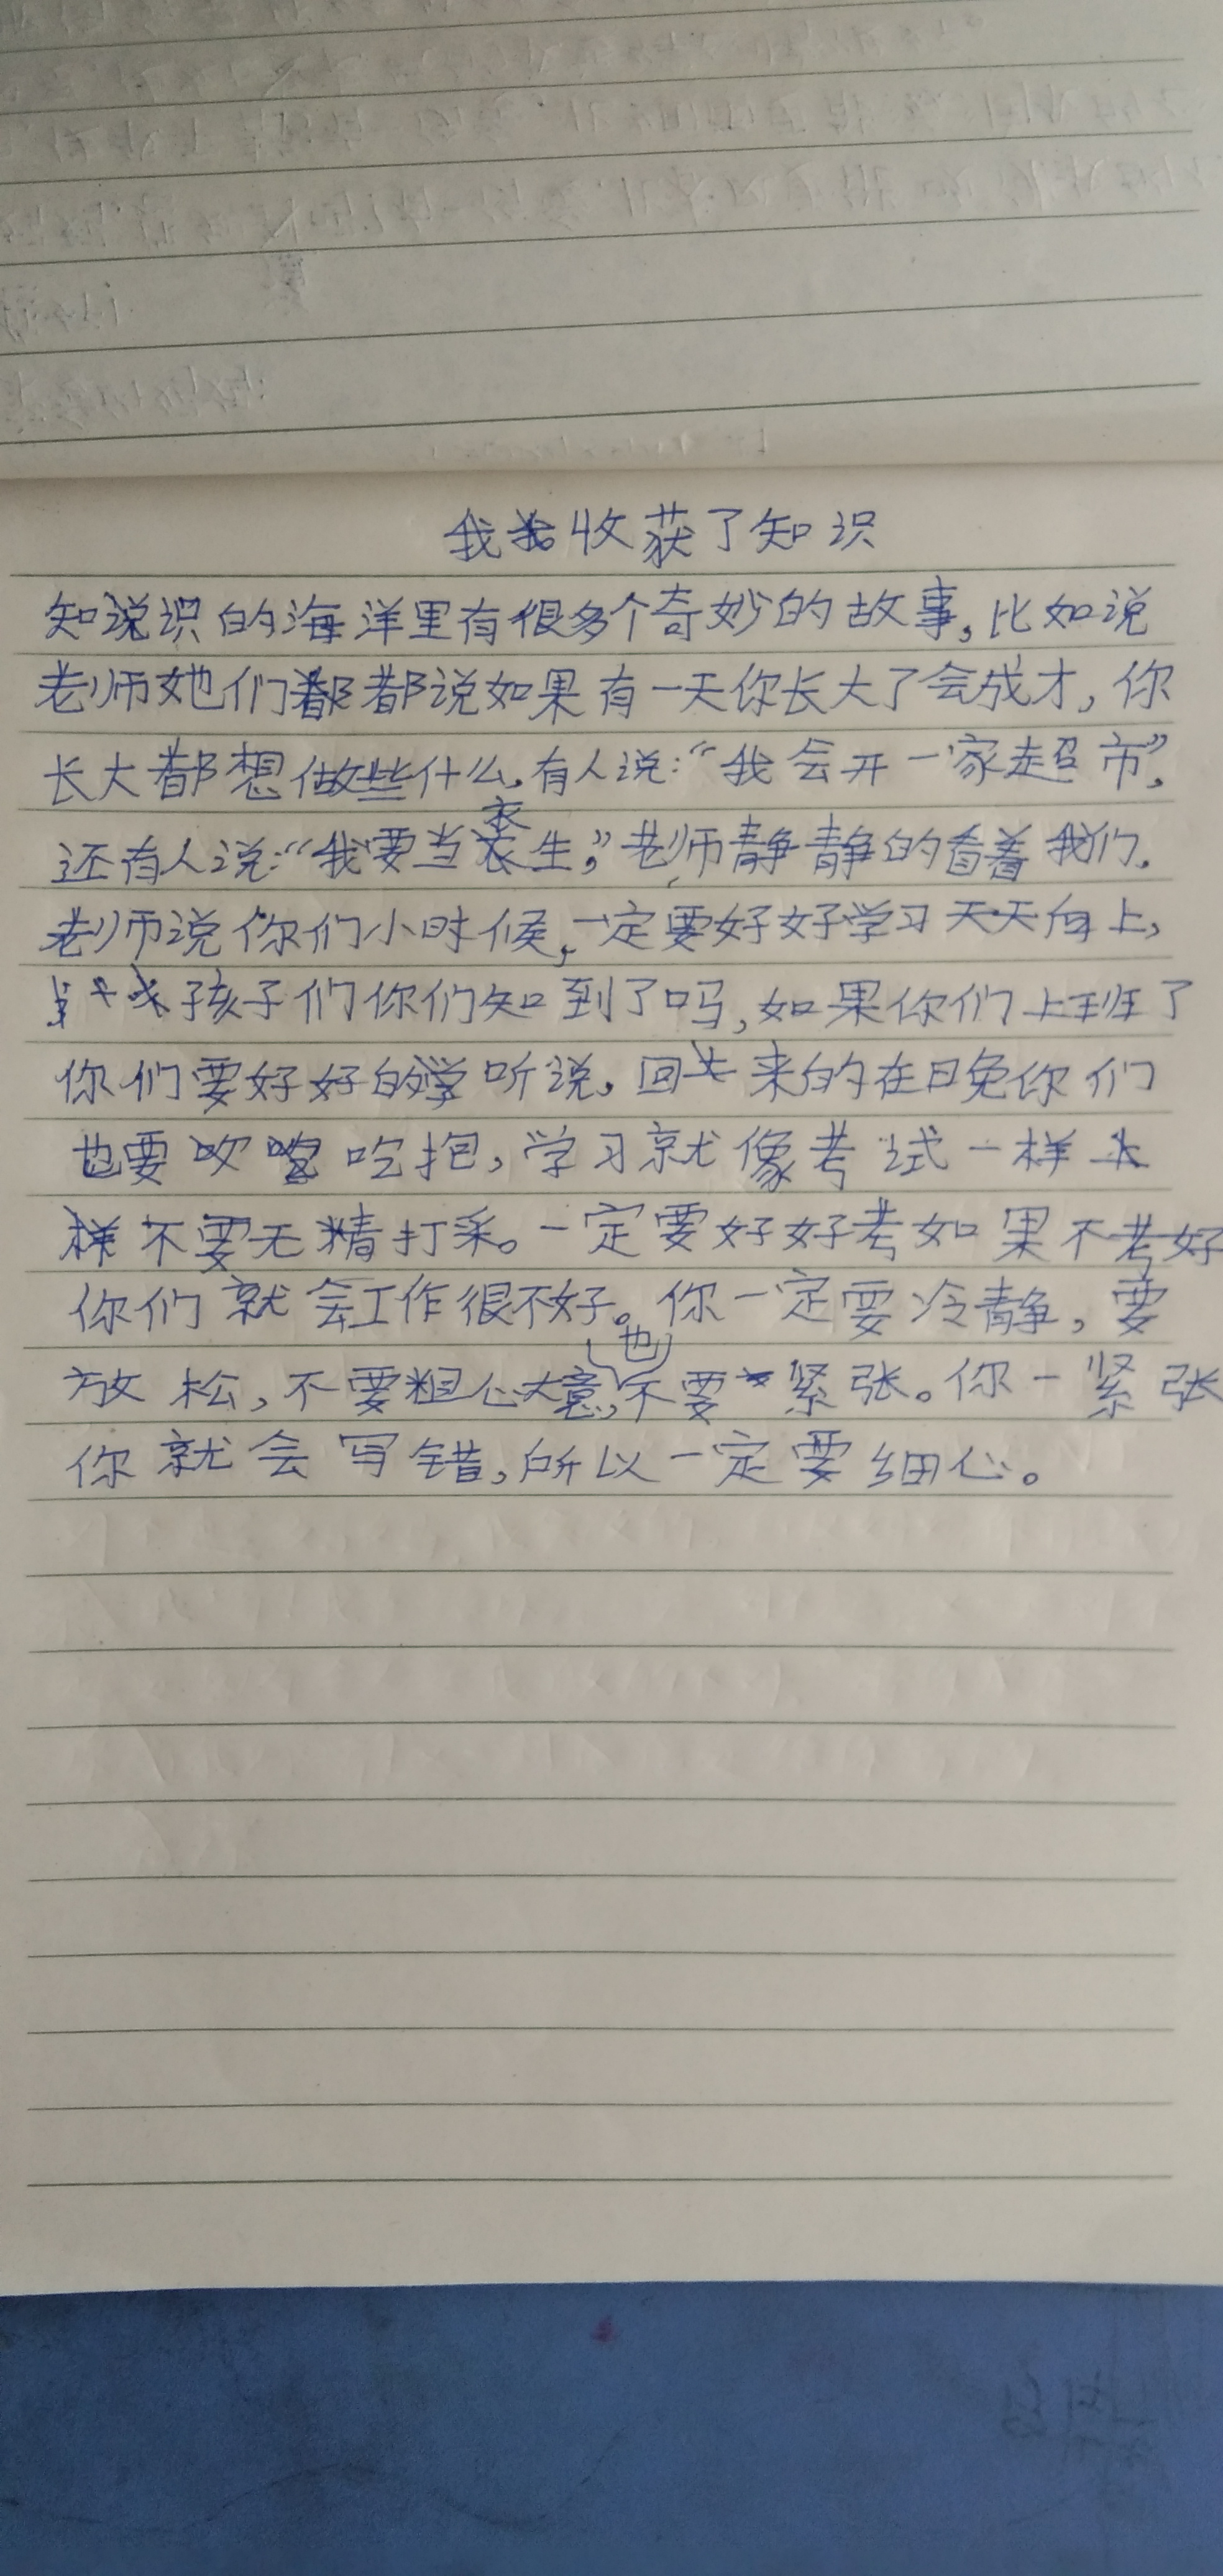 我收获了知识
知识的海洋里有很多个奇妙的故事。比如说
老师她们都说如果有一天你长大了会成才，你
长大都想做些什么。有人说：“我会开一家超市”，
还有人说：“我要当衣生，”老师静静的看着我们。
老师说你们小时候，一定要好好学习天天向上，
孩子们你们知到了吗，如果你们上班了
你们要好好的听说，回来的在日免你们
也要吃抱，学习就像考试一样
不要无精打采。一定要好好考如果不考好
你们就会工作很不好。你一定要冷静，要
放松，不要粗心大意，也不要紧张。你一紧张
你就会写错，所以一定要细心。